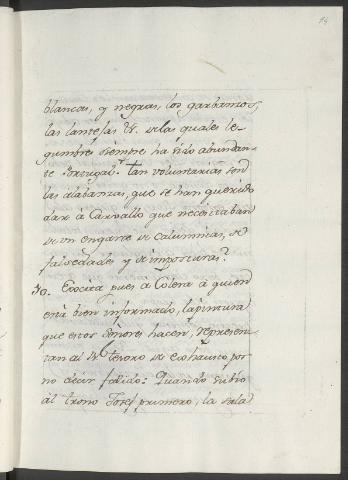 blancas, y negras, los garbanzos,
las lantejas &. de las quales le-
gumbres siempre ha sido abundan-
te Portugal. Tan voluntarias son
las alabanzas, que se han querido
dar à Carvallo que necesitaban
de un engarce de calumnias, de
falsedades y de imposturas?
30. Excita pues à Colera à quien
està bien informado, la pintura
que estos Señores hacen, represen-
tan al Rl. tesoro de exhausto, por
no decir fallido: Quando subio
al trono Josef primero, la sola